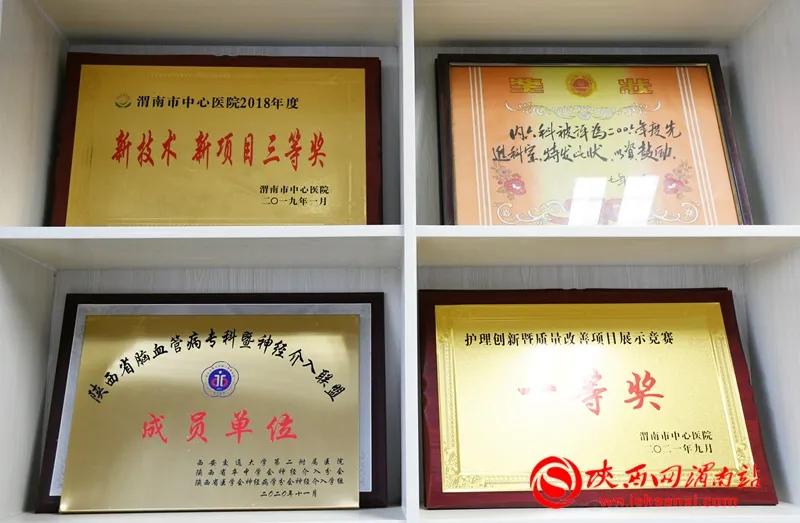 渭南市中心医院2018年度
新技术 新项目三等奖
渭南市中心医院
二〇一九年一月
奖状
内六科被评为二〇〇六年度先
进科室,特发此状,以资鼓励.
陕西省脑血管病专科暨神经介入联盟
成员单位
西安交通大学第二附属医院
陕西省卒中学会神经介入分会
陕西省医学会神经病学分会神经介入学组
二〇二〇年十一月
护理创新暨质量改善项目展示竞赛
一等奖
渭南市中心医院
二〇二一年九月
陕西网渭南站